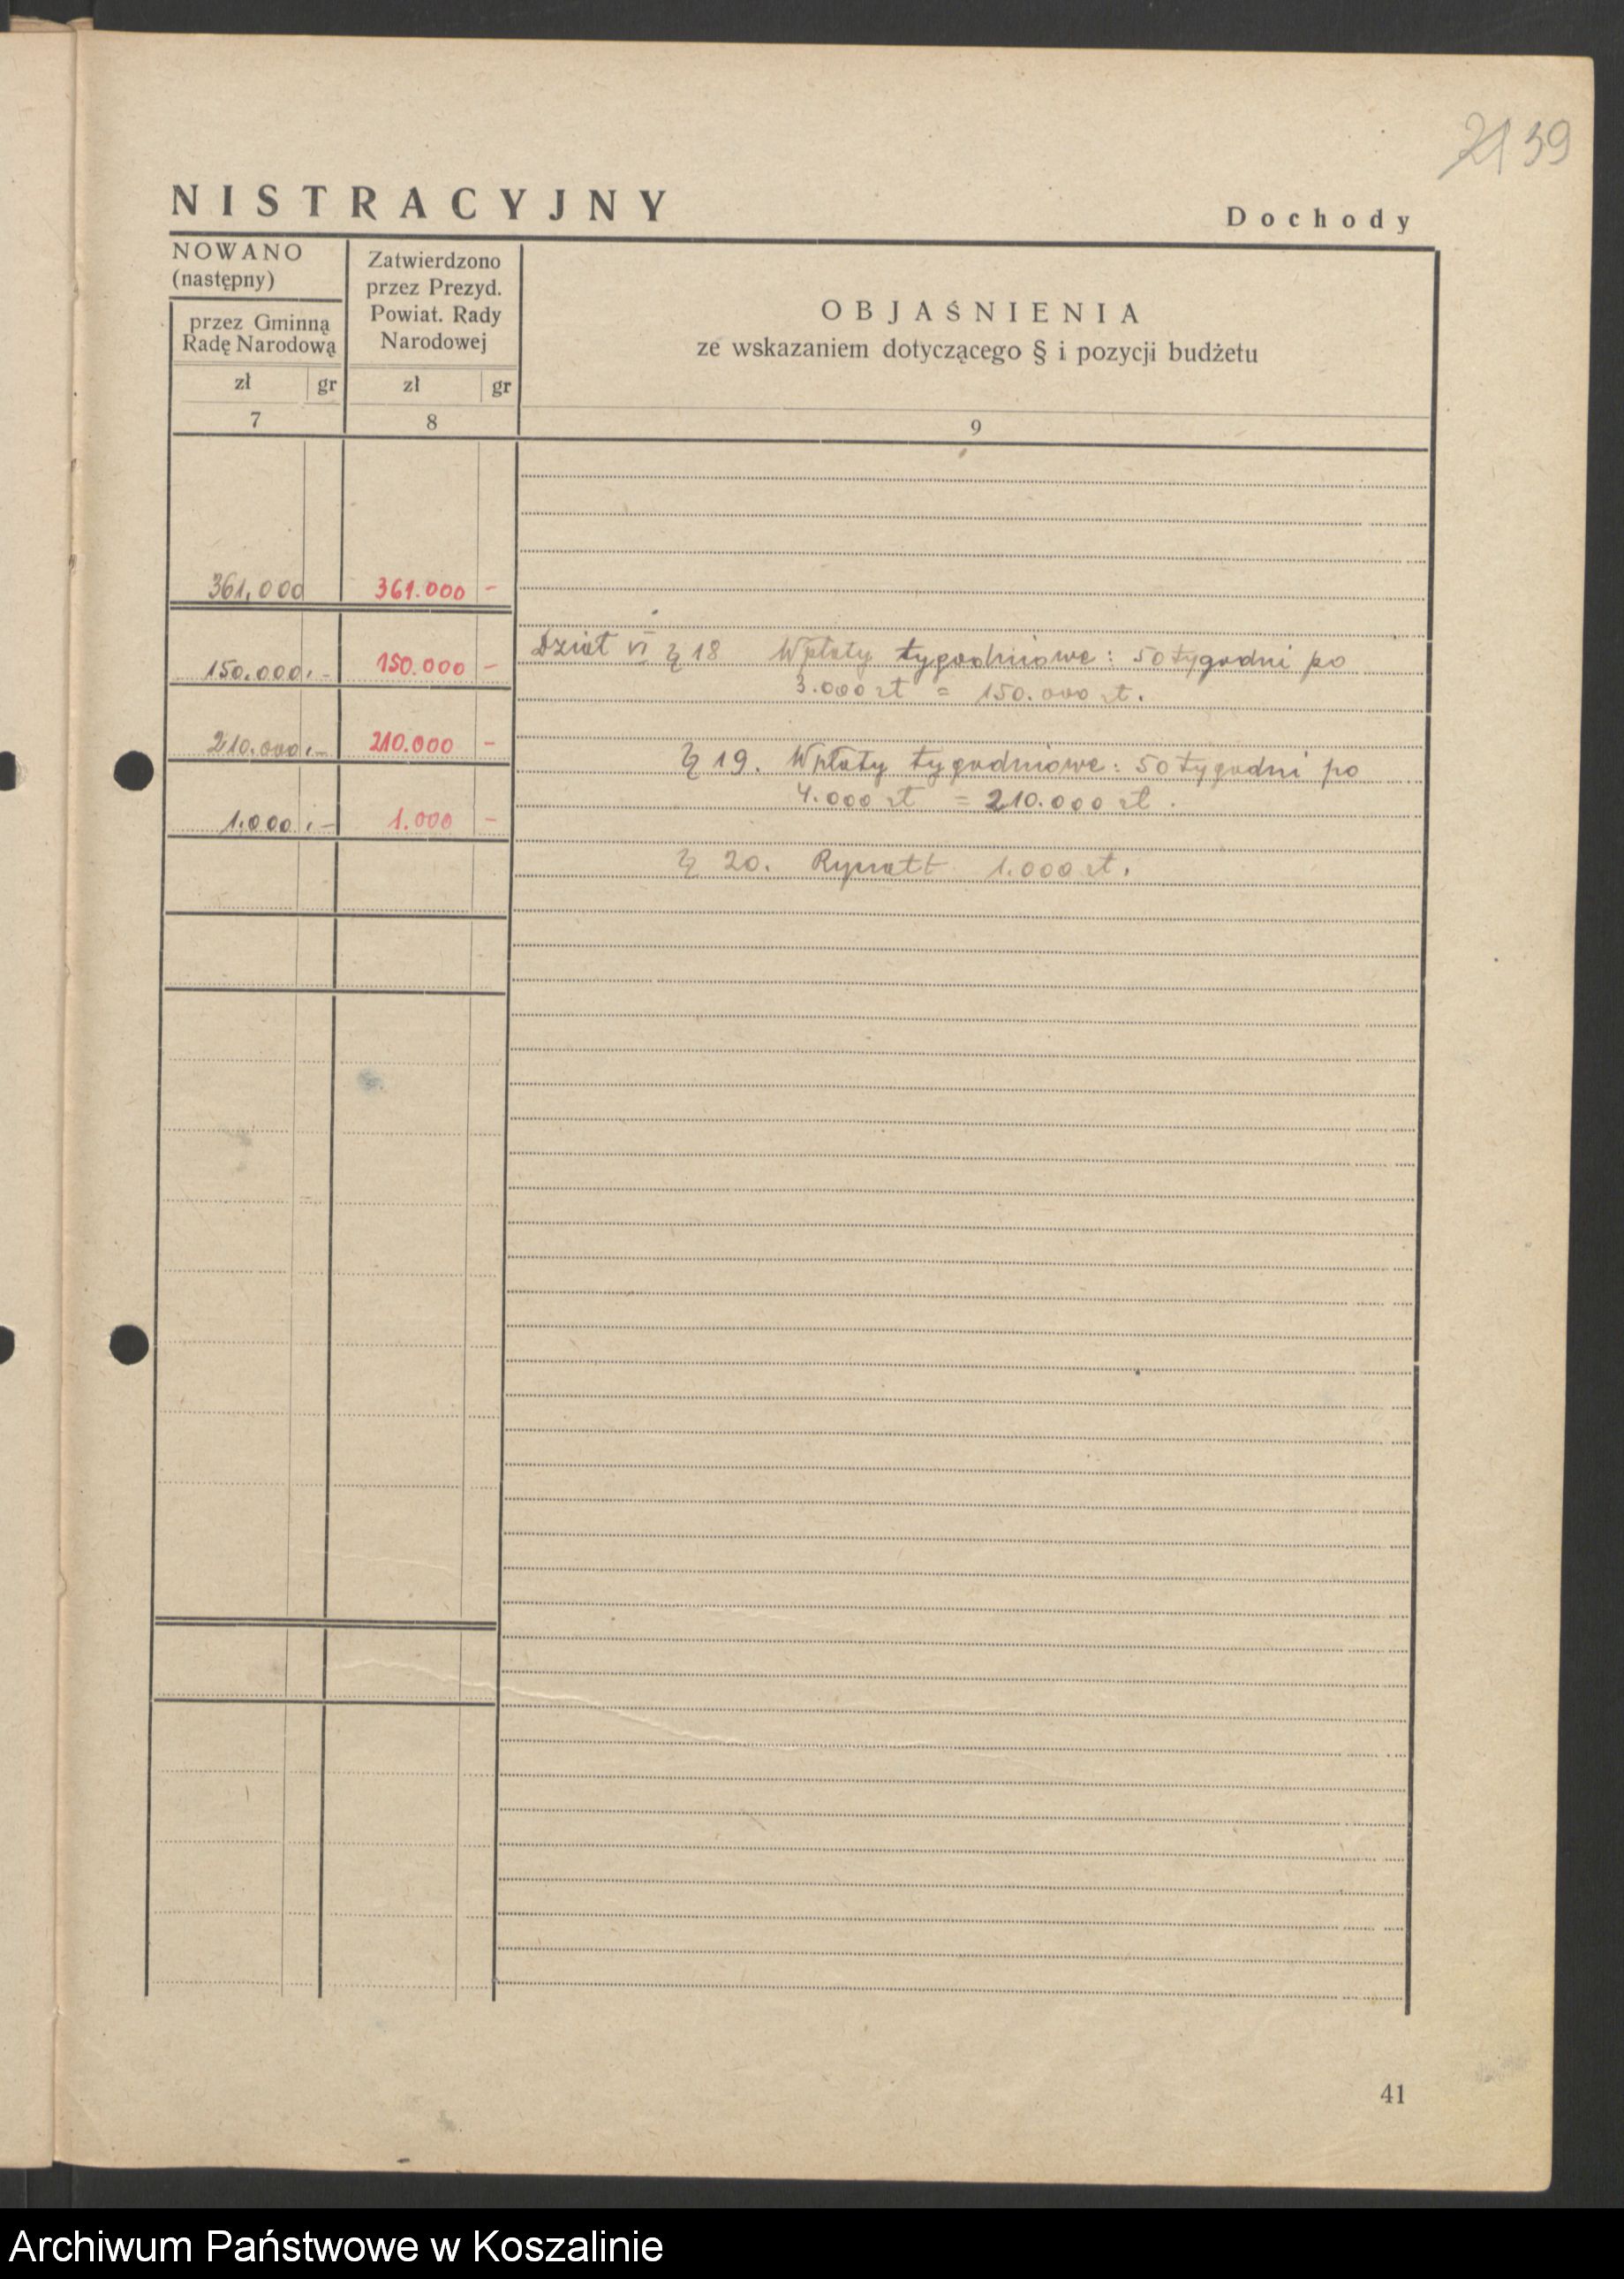 21 39
NISTRACYJNY
Dochody
NOWANO
(następny)
przez Gminną
Radę Narodową
zł gr
7
Zatwierdzono
przez Prezyd.
Powiat. Rady
Narodowej
zł gr
8
OBJAŚNIENIA
ze wskazaniem dotyczącego § i pozycji budżetu
9
361,000 361.000 -
150.000.- 150.000 - Dział VI § 18 Wpłaty tygodniowe: 50 tygodni po
3.000 zł = 150.000 zł.
210.000.- 210.000 -
§ 19. Wpłaty tygodniowe: 50 tygodni po
4.000 zł = 210.000 zł.
1.000.- 1.000 -
§ 20. 1.000 zł.
41
Archiwum Państwowe w Koszalinie